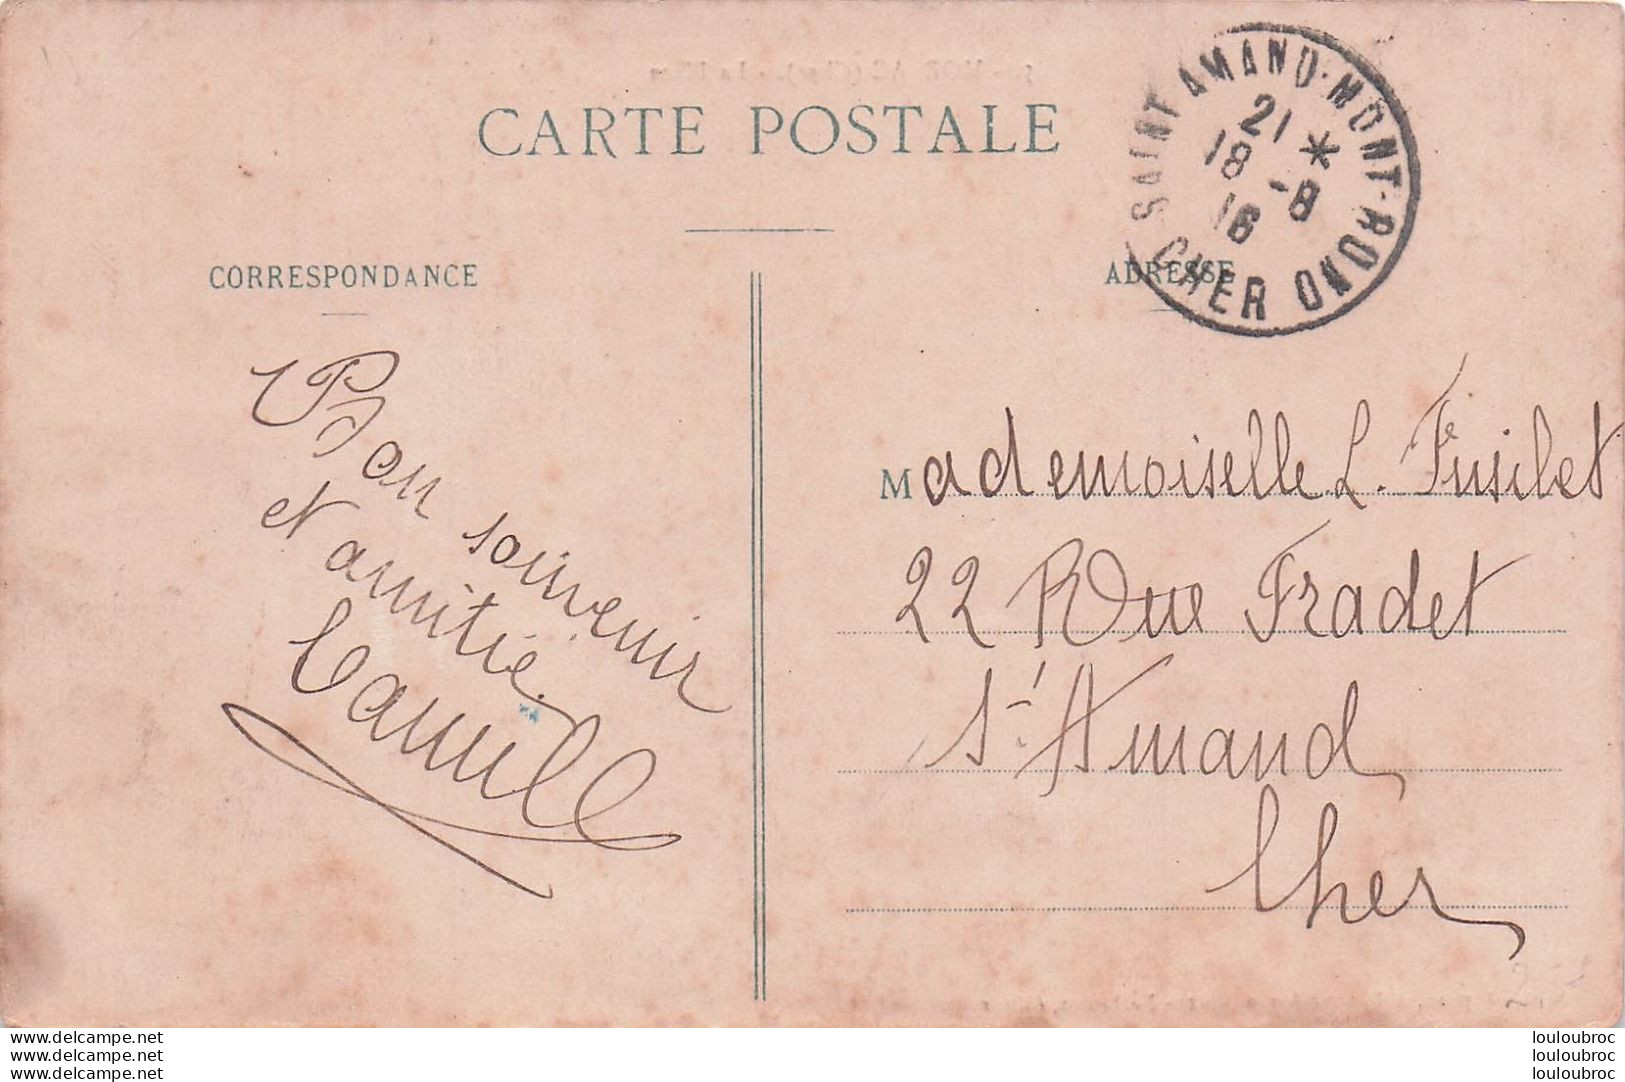 CARTE POSTALE
SAINT AMAND-MONT-ROND
21 *
18 -8
16
CHER
CORRESPONDANCE
ADRESSE
Bon souvenir
et amitié
Camille
Mademoiselle L. Fusilet
22 Rue Fradet
St Amand
Cher
www.delcampe.net
www.delcampe.net
www.delcampe.net
louloubroc
louloubroc
louloubroc